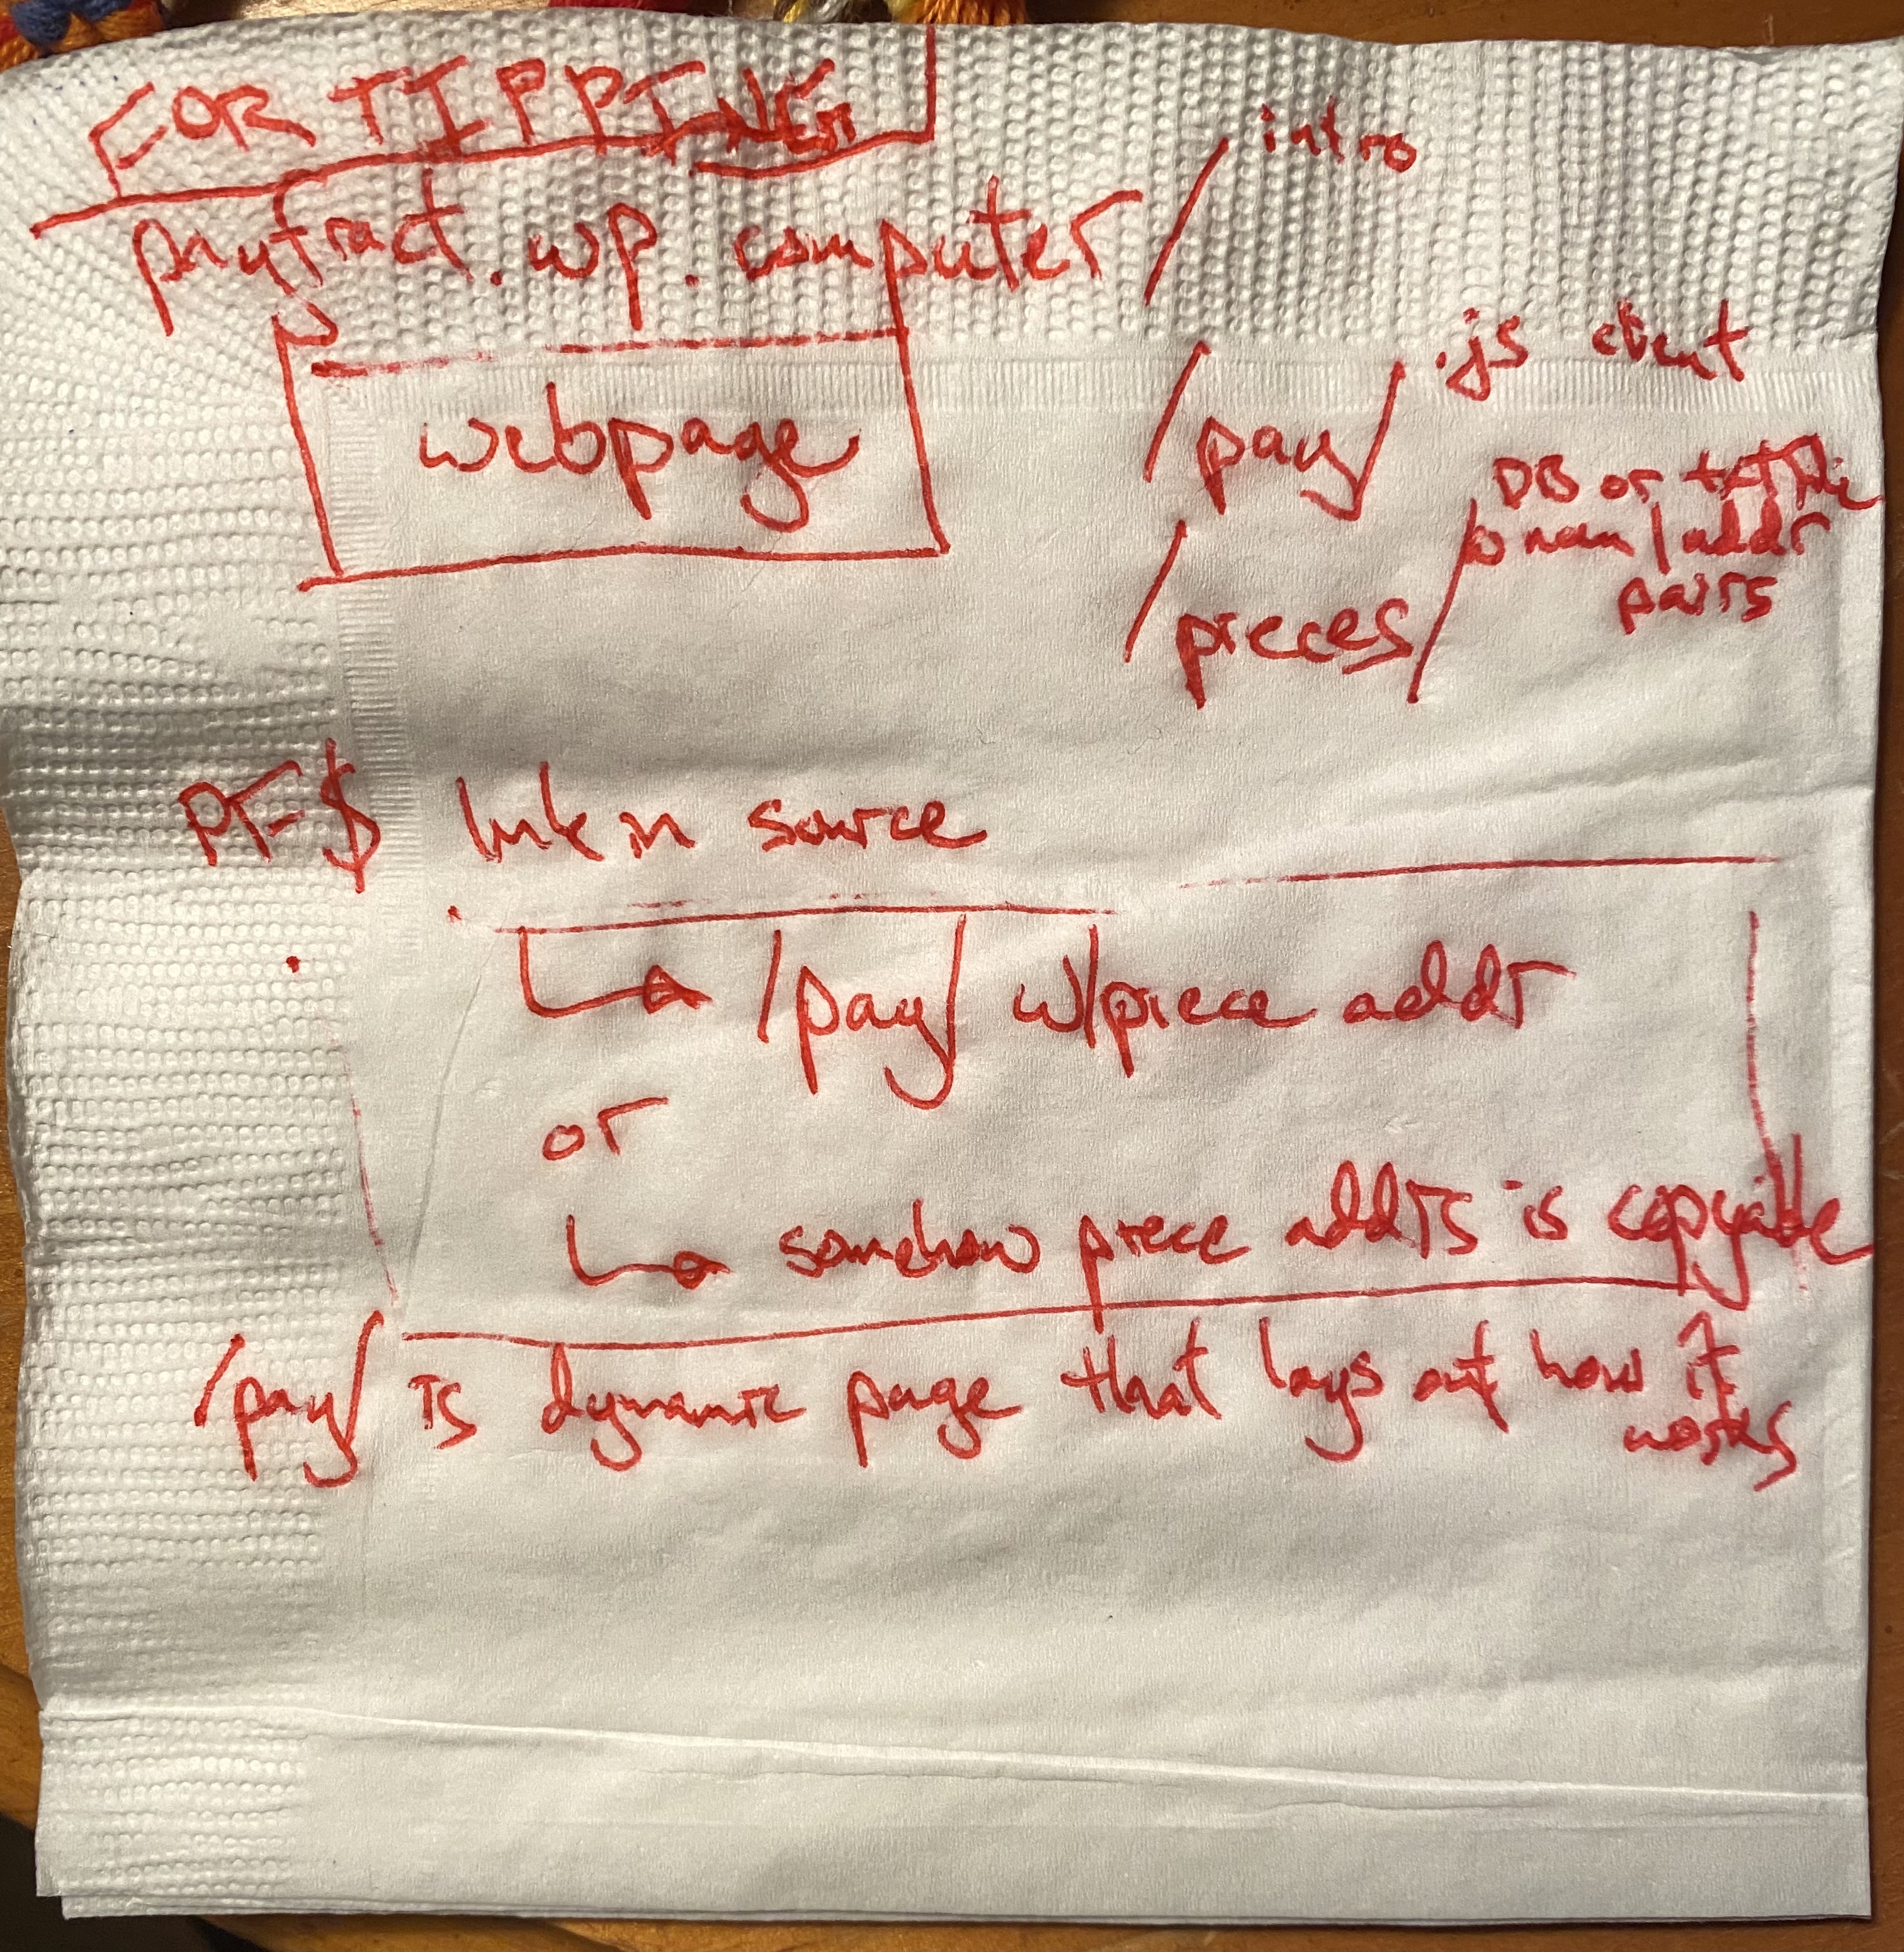 FOR TIPPING
payfract.wp.computer/ intro
webpage
/pay/ .js client
/pieces/ DB or txt file
nam/addr
pairs
PF-$ link in source
/pay/ w/piece addr
or
somehow piece addrs is copyable
/pay/ is dynamic page that lays out how it
works